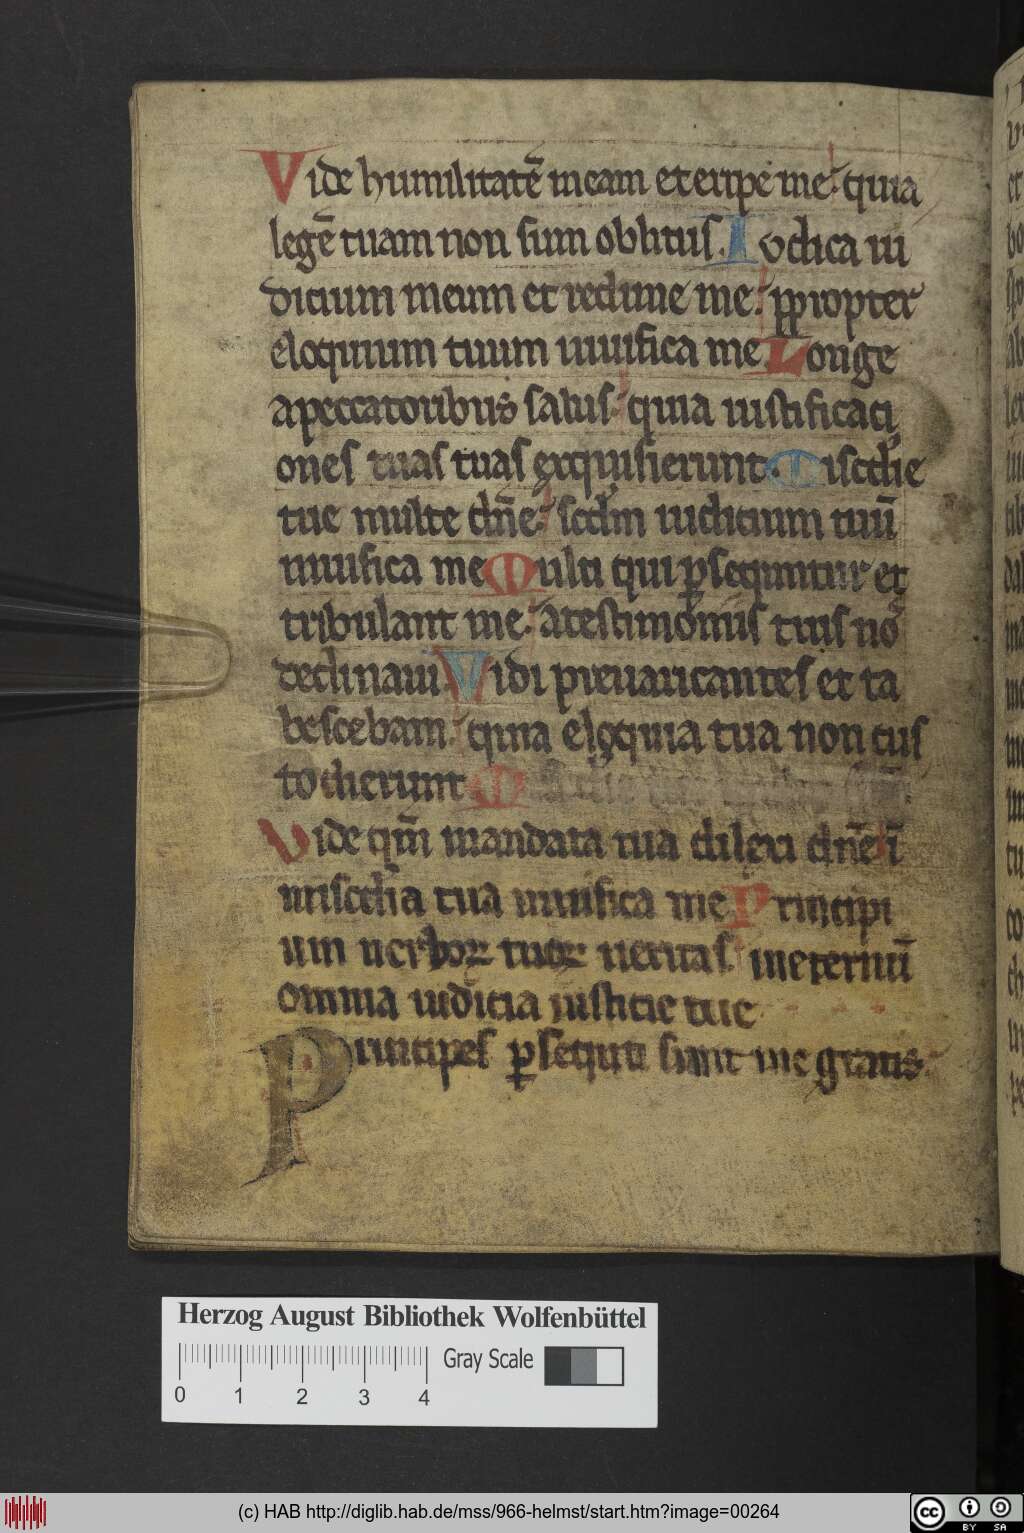 Vide humilitatē meam et eripe me. quia
legē tuam non sum oblitus. Iudica iu
dicium meum et redime me. ppropter
eloquium tuum uiuifica me Longe
a peccatoribus salus. quia iustificaci
ones tuas tuas exquisierunt. Miscdie
tue multe dn̄e. scdm iudicium tuū
uiuifica me Multi qui ꝑsequntur et
tribulant me. a testimoniis tuis nō
declinaui. Vidi preuaricantes et ta
bescebam. quia eloquia tua non cus
todierunt
Vide qm̄ mandata tua dilexi dn̄e ī
miscdia tua uiuifica me Principi
um uerboꝝ tuoꝝ ueritas. ineternū
omnia iudicia iusticie tue
Principes ꝑsequti sunt me gratis.
Herzog August Bibliothek Wolfenbüttel
Gray Scale
0 1 2 3 4
(c) HAB http://diglib.hab.de/mss/966-helmst/start.htm?image=00264
cc BY SA